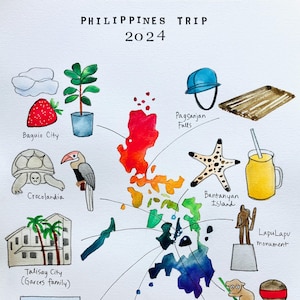 PHILIPPINES TRIP
2024
Baguio City
Pagsanjan
Falls
Crocolandia
Bantanyan
Island
LapuLapu
monument
Talisay City
(Garces family)